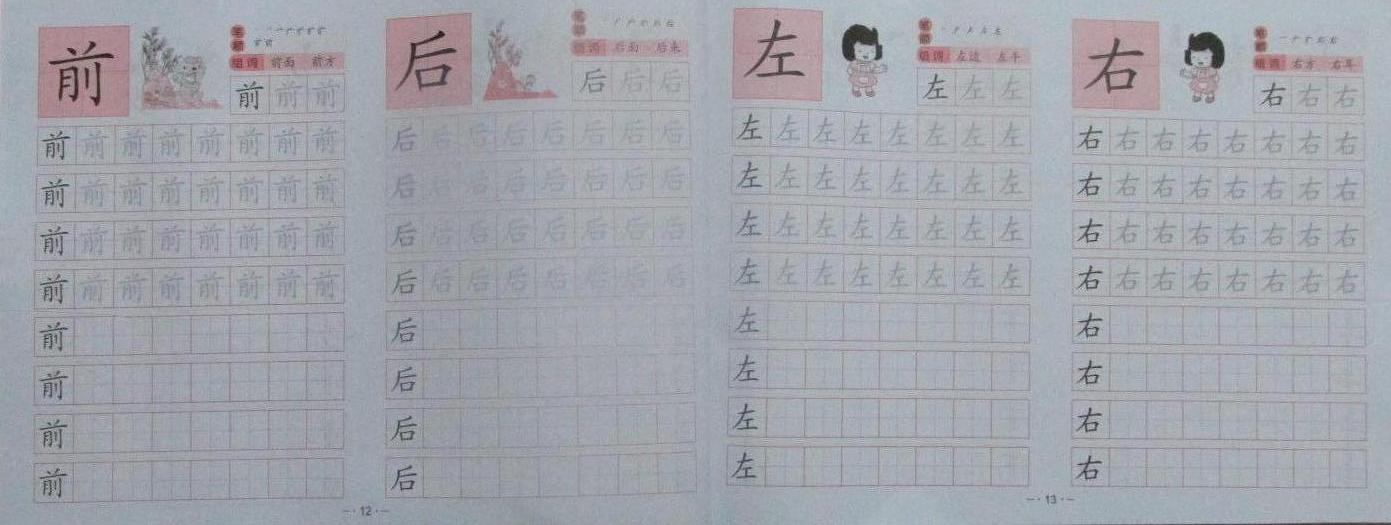 前
笔顺
组词 前面 前方
前 前 前
前 前 前 前 前 前 前 前
前 前 前 前 前 前 前 前
前 前 前 前 前 前 前 前
前 前 前 前 前 前 前 前
前
前
前
前
后
笔顺
组词 后面 后来
后 后 后
后 后 后 后 后 后 后 后
后 后 后 后 后 后 后 后
后 后 后 后 后 后 后 后
后 后 后 后 后 后 后 后
后
后
后
后
12
左
笔顺
组词 左边 左手
左 左 左
左 左 左 左 左 左 左 左
左 左 左 左 左 左 左 左
左 左 左 左 左 左 左 左
左 左 左 左 左 左 左 左
左
左
左
左
右
笔顺
组词 右方 右耳
右 右 右
右 右 右 右 右 右 右 右
右 右 右 右 右 右 右 右
右 右 右 右 右 右 右 右
右 右 右 右 右 右 右 右
右
右
右
右
13